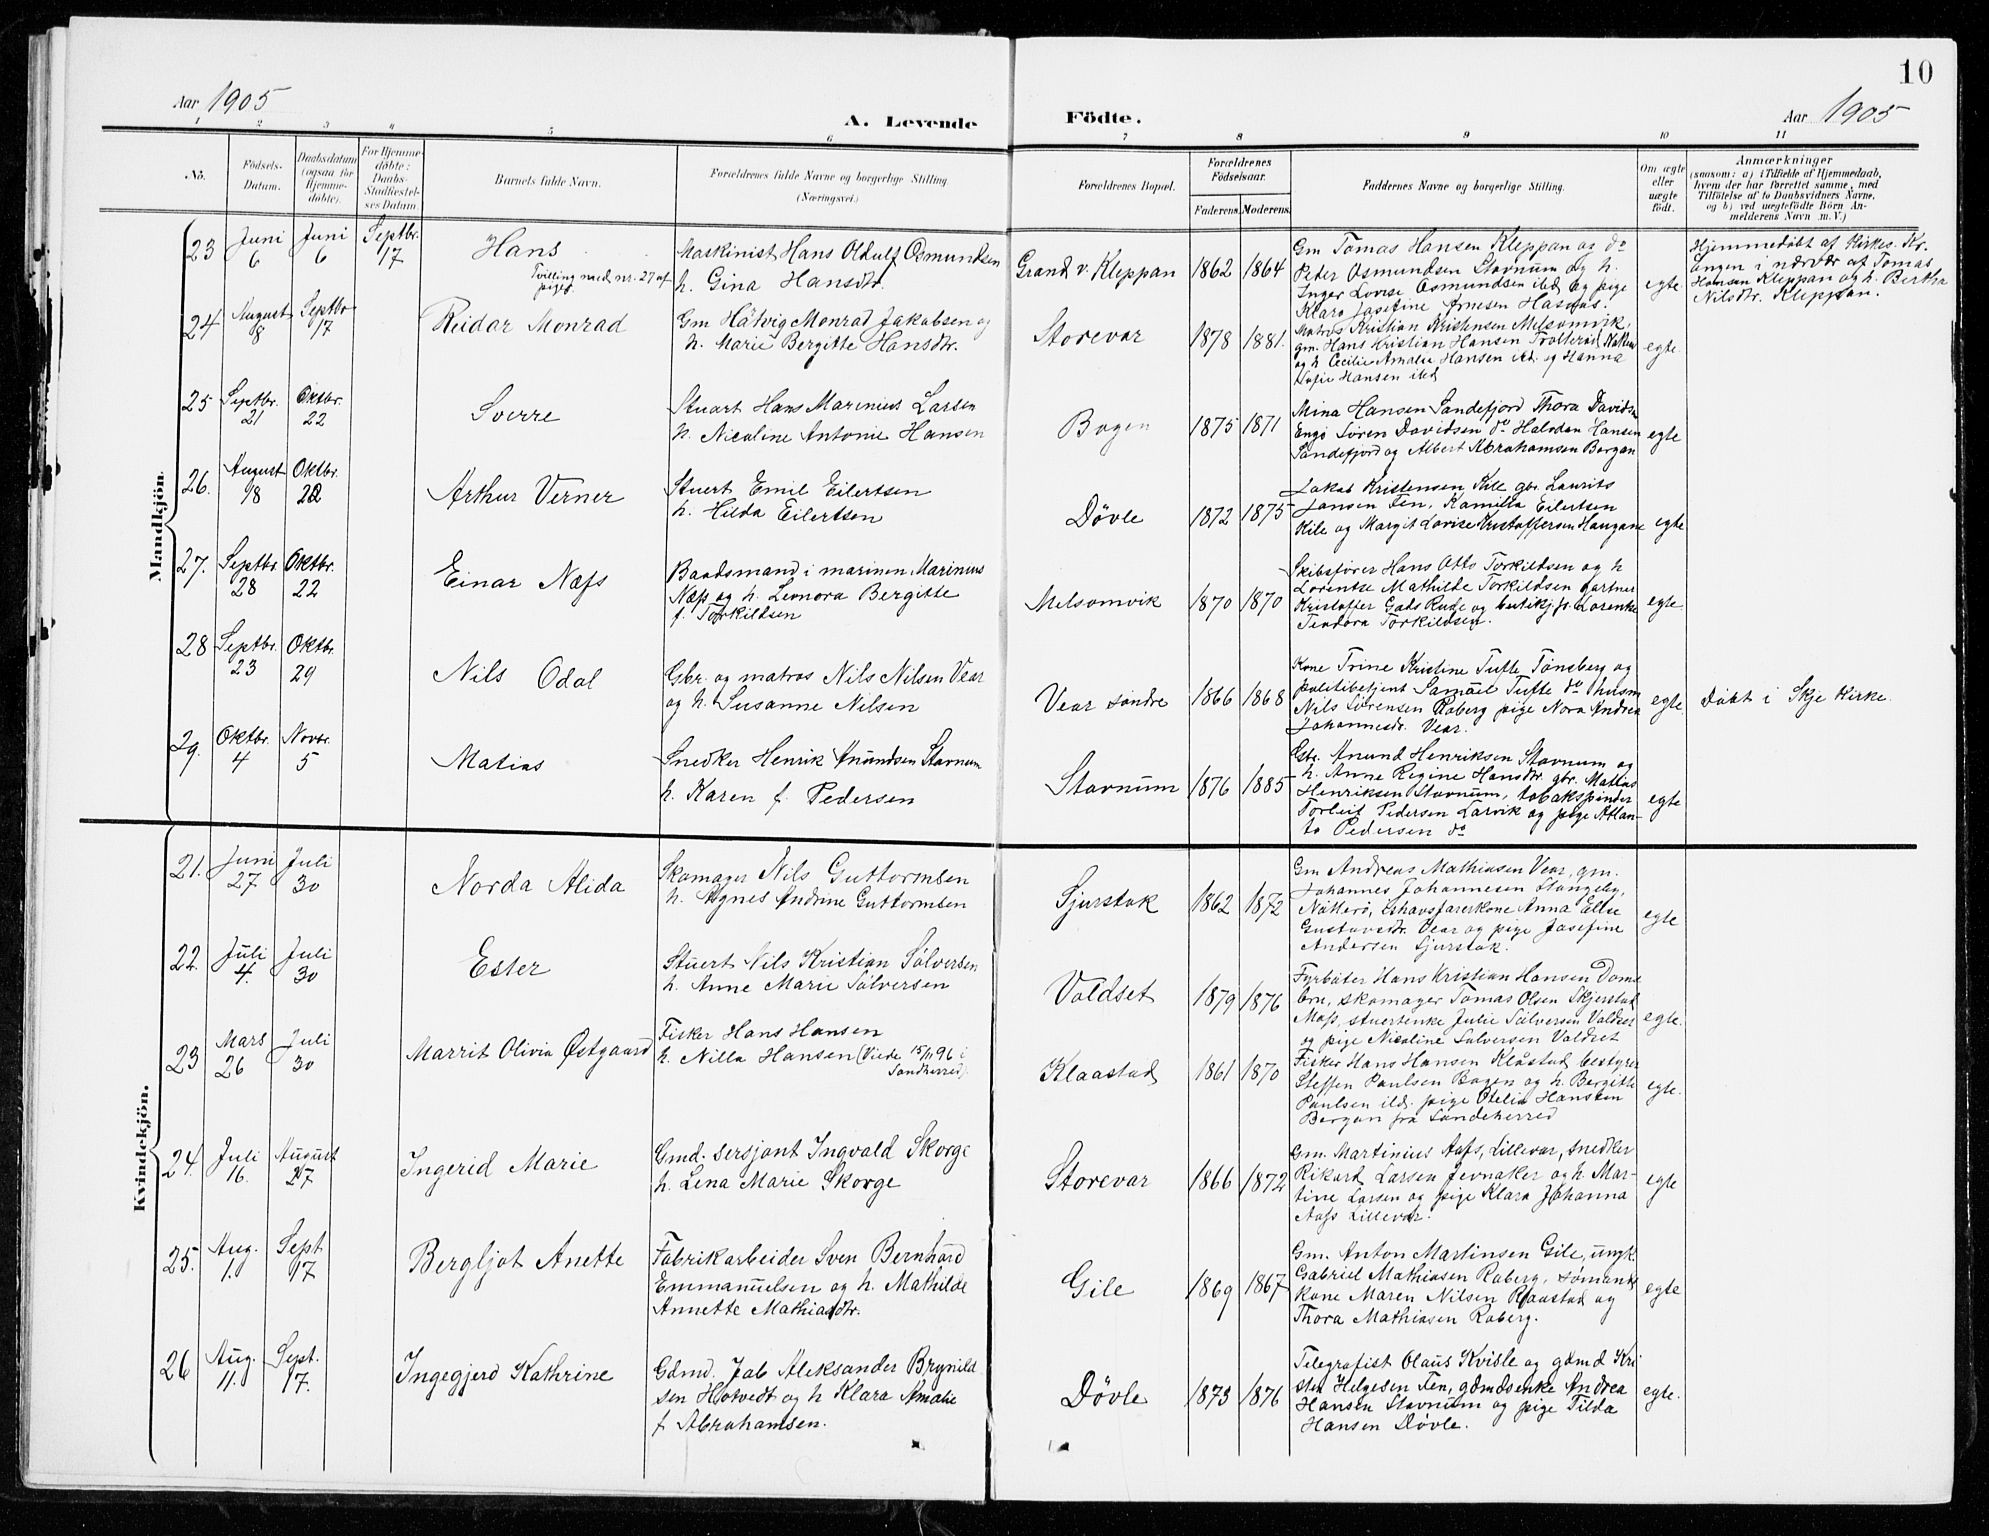 10
Aar 1905
A. Levende Födte.
Aar 1905
1 2 3 4 5 6 7 8 9 10 11
No.
Födsels-Datum.
Daabsdatum (ogsaa for Hjemme-döbte).
For Hjemme-döbte: Daabs-Stadfæstel-ses Datum.
Barnets fulde Navn.
Forældrenes fulde Navne og borgerlige Stilling (Næringsvei.)
Forældrenes Bopæl.
Forældrenes Födselsaar.
Faderens. Moderens.
Faddernes Navne og borgerlige Stilling.
Om ægte eller uægte födt.
Anmærkninger
(saasom: a) i Tilfælde af Hjemmedaab,
hvem der har forrettet samme, med
Tilföielse af to Daabsvidners Navne,
og b) ved uægtefödte Börn An-
melderens Navn m. V.)
Mandkjön.
23 Juni 6 Juni 6 Septbr. 17
Hans
Tvilling med nr. 27 af piger
Maskinist Hans Oldulf Osmundsen
h. Gina Hansdtr.
Grand v. Kleppan 1862 1864
Gm Tomas Hansen Kleppan og do
Peter Osmundsen Stavnum og h.
Inger Lovise Osmundsen ibd og pige
Klara Josefine Arnesen Hasnæs.
egte
Hjemmedøbt af Kirkes. Kr.
Langen i nærvær af Tomas
Hansen Kleppan og h. Bertha
Nilsdtr. Kleppan.
24 August 8 Septbr 17
Reidar Monrad
Gm Hatvig Monrad Jakobsen og
h. Marie Bergitte Hansdtr.
Storevar 1878 1881.
Matros Kristian Kristensen Melsomvik,
gm. Hans Kristian Hansen Trolterød Nøtterø
og h Cecilie Amalie Hansen ibd. og Hanna
Sofie Hansen ibd
egte
25 Septbr. 21 Oktbr. 22
Sverre
Stuart Hans Marinius Larsen
h. Nicoline Antonie Hansen
Bogen 1875 1871
Mina Hansen Sandefjord Thora Davidsn
Engø Søren Davidsen do Halvdan Hansen
Sandefjord og Albert Abrahamsen Bergan
egte
26. August 18 Oktbr. 22
Arthur Verner
Stuert Emil Eilertsen
h. Hilda Eilertsen
Døvle 1872 1875
Jakob Kristensen Kile gbr. Laurits
Jansen Fen, Kamilla Eilertsen
Kile og Margit Lovise Kristoffersen Haugane
egte
27. Septbr. 28 Oktbr. 22
Einar Næss
Baadsmand i marinen Marinius
Næss og h. Leonora Bergitte
f. Torkildsen
Melsomvik 1870 1870
Skibsfører Hans Otto Torkildsen og h
Lorentse Mathilde Torkildsen gartner
Kristoffer Gads Rude og butikj.fr. Lorentse
Teodora Torkildsen.
egte
28 Septbr. 23 Oktbr. 29
Nils Odal
Gbr. og matros Nils Nilsen Vear
og h. Susanne Nilsen
Vear søndre 1866 1868
Kone Trine Kristine Tufte Tønsberg og
politibetjent Samuel Tufte do husm
Nils Sørensen Raberg pige Nora Andrea
Johannesdr. Vear.
egte
Døbt i Skje Kirke
29. Oktbr. 4 Novbr. 5
Matias
Snedker Henrik Anundsen Stavnum
h. Karen f. Pedersen
Stavnum 1876 1885
Gbr. Anund Henriksen Stavnum og
h. Anne Regine Hansdtr. gbr. Mattias
Henriksen Stavnum, tobakspinder
Torleif Pedersen Larvik og pige Atlan-
ta Pedersen do
egte
Kvindekjön.
21. Juni 27 Juli 30
Norda Alida
Skomager Nils Guttormsen
h. Agnes Andrine Guttormsen
Sjurstok 1862 1872
Gm Andreas Mathiasen Vear, gm.
Johannes Johannesen Stangeby,
Nøtterø, ishavsfarerkone Anna Elise
Gustavsdtr. Vear og pige Josefine
Andersen Sjurstok.
egte
22. Juli 4. Juli 30
Ester
Stuert Nils Kristian Sølversen
h. Anne Marie Sølversen
Valdset 1879 1876
Fyrbøter Hans Kristian Hansen
skomager Tomas Olsen Skjerstad
Moss, stuertenke Julie Sølversen Valdset
og pige Nicoline Sølversen Valdset
egte.
23 Mars 26 Juli 30
Marrit Olivia Østgaard
Fisker Hans Hansen
h. Nilla Hansen (Viede 15/11 96 i
Sandherred).
Klaastad 1861 1870
Fisker Hans Hansen Klåstad bestyrer
Steffen Paulsen Bogen og h. Bergitte
Paulsen ibd. pige Otelia Hansten
Bergan fra Sandeherred
egte.
24. Juli 16. August 27
Ingerid Marie
Gmd. sersjant Ingvald Skorge
h. Lena Marie Skorge
Storevar 1866 1872
Gm. Martinius Aass, Lillevar, snedker
Rikard Larsen Jevnaker og h. Mar-
tine Larsen og pige Klara Johanna
Aass Lillevar.
egte
25. Aug. 1. Sept 17
Bergljot Anette
Fabrikarbeider Sven Bernhard
Emmanuelsen og h. Mathilde
Annette Mathiasdtr.
Gile 1869 1867
Gm. Anton Martinsen Gile, ungk.
Gabriel Mathiasen Raberg, sømands
kone Maren Nilsen Raastad og
Thora Mathiasen Raberg.
egte
26 Aug. 11. Sept. 17.
Ingegjerd Kathrine
Gdmd. Jab Aleksander Brynild
sen Hotvedt og h Klara Amalie
f Abrahamsen.
Døvle 1873 1876
Telegrafist Olaus Kvisle og gdmd Kri
sten Helgesen Fen, gdmdsenke Andrea
Hansen Stavnum og pige Tilda
Hansen Døvle.
egte.